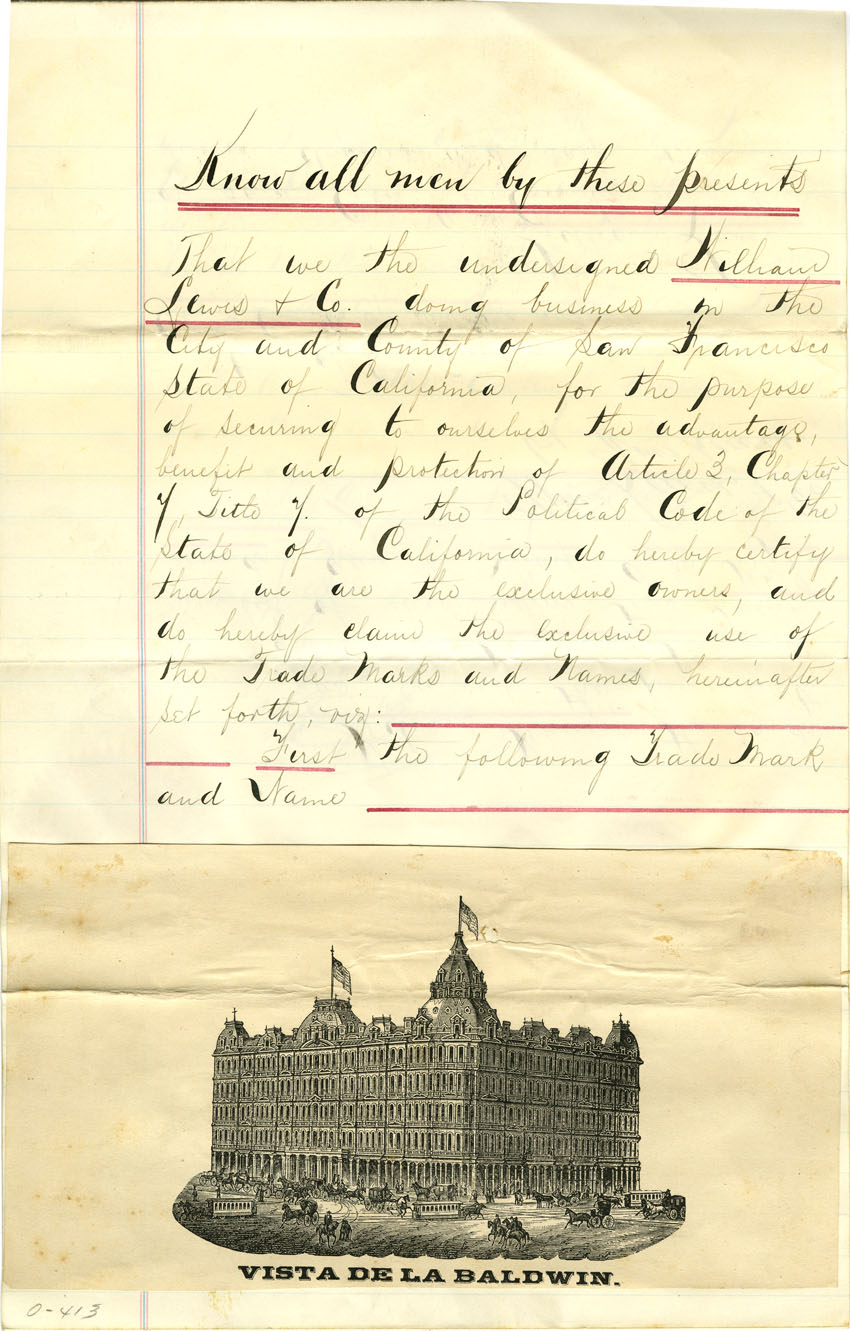 Know all men by these presents
That we the undersigned William
Lewis & Co. doing business in the
City and County of San Francisco
State of California, for the purpose
of securing to ourselves the advantage,
benefit and protection of Article 3, Chapter
7, Title 7. of the Political Code of the
State of California, do hereby certify
that we are the exclusive owners, and
do hereby claim the exclusive use of
the Trade Marks and Names, hereinafter
set forth, viz:
First the following Trade Mark
and Name
VISTA DE LA BALDWIN.
0-413